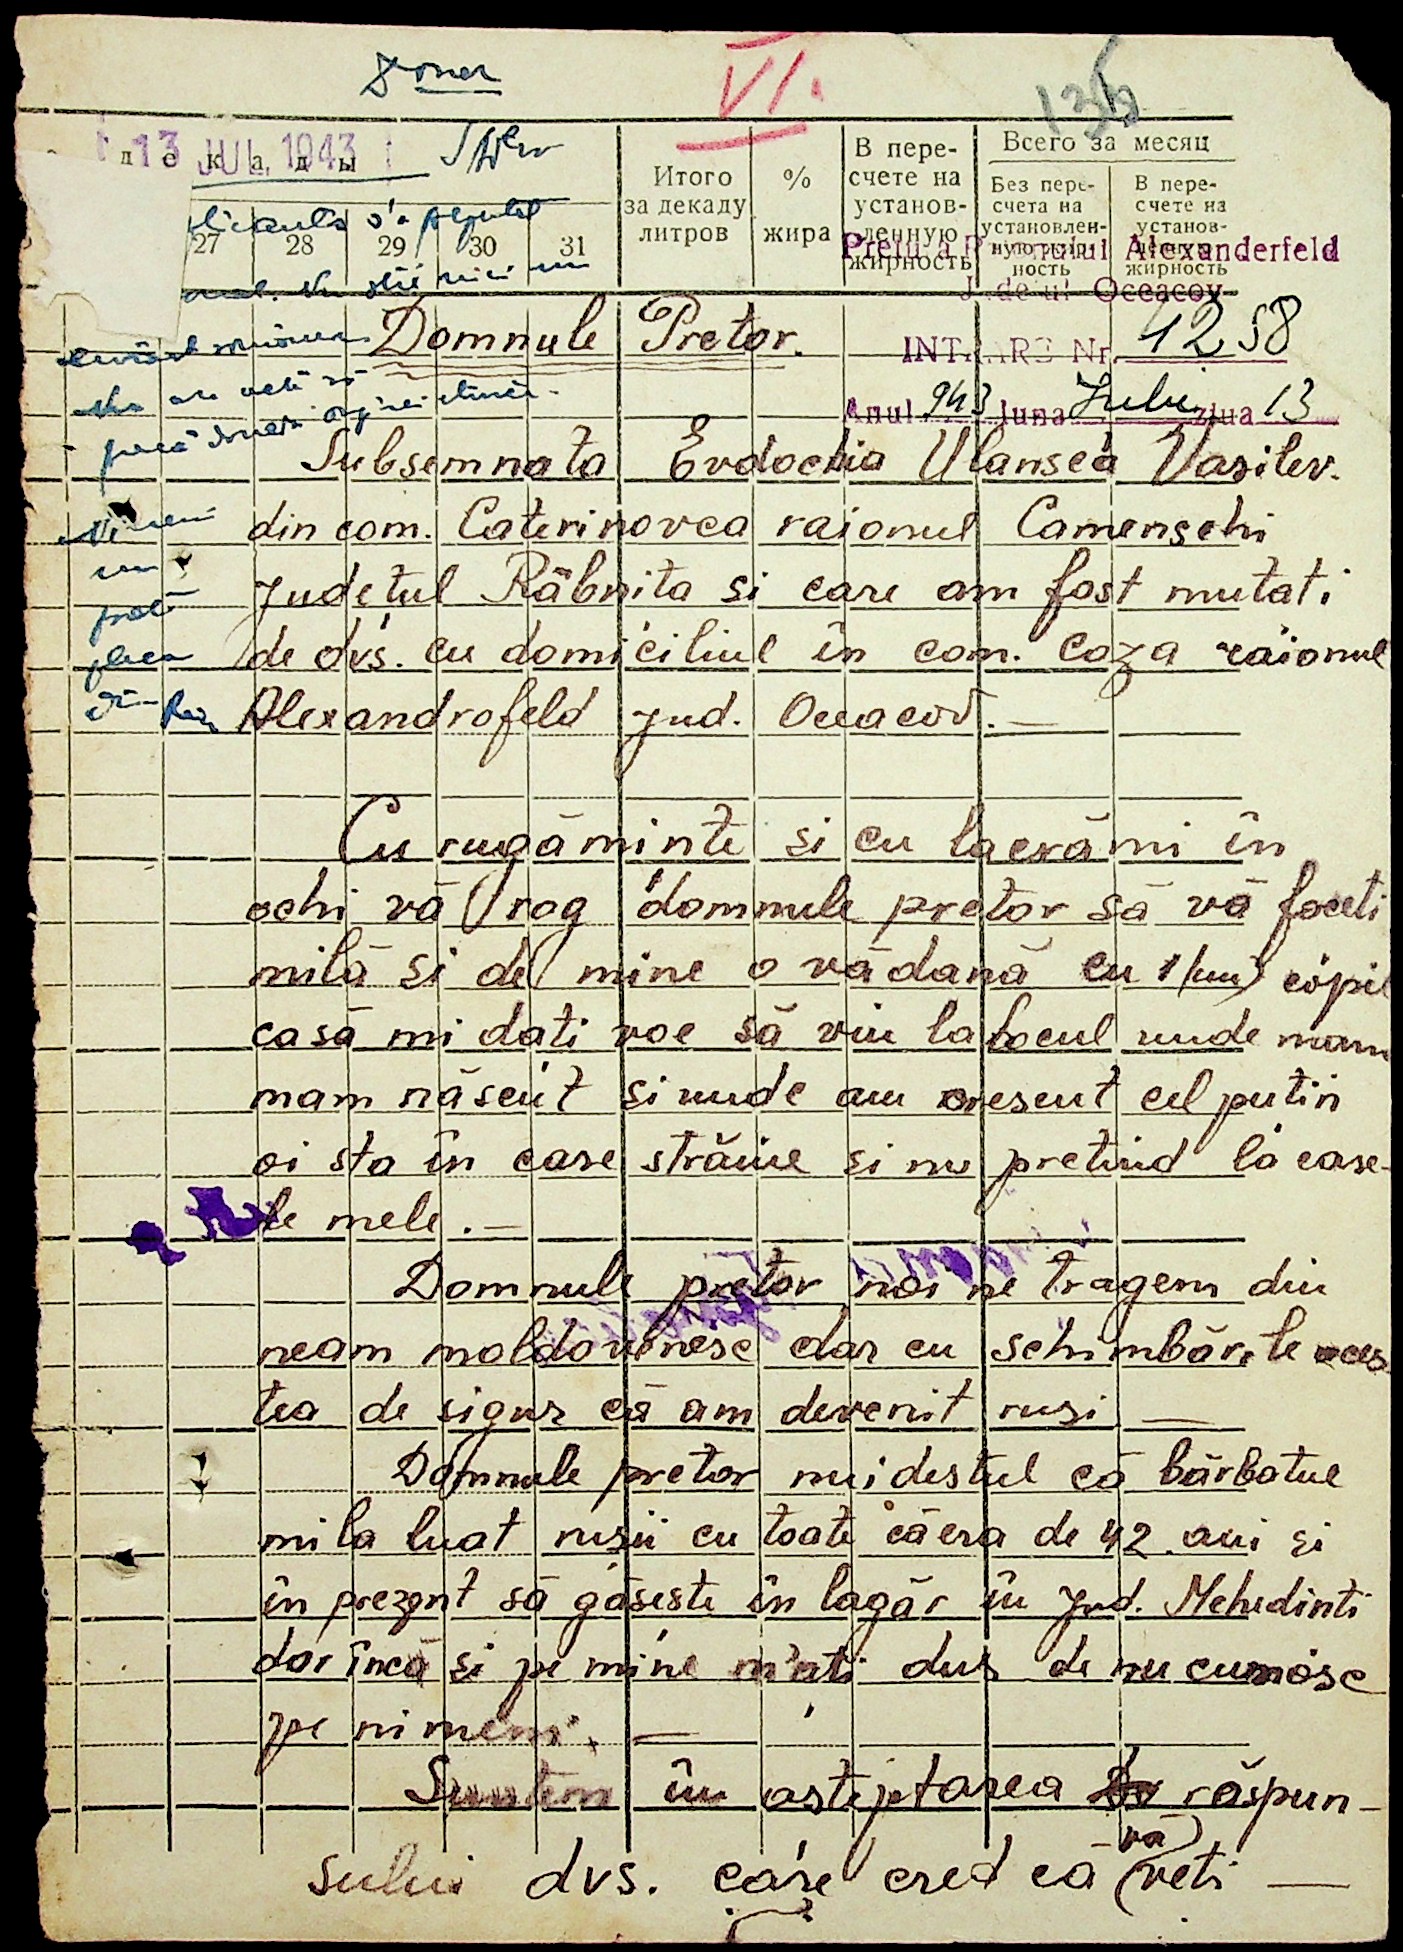 VI.
136
13 JUL. 1943
д е к а д ы
27 28 29 30 31
Итого за декаду литров
% жира
В пере-счете на установ-ленную жирность
Всего за месяц
Без пере-счета на установлен-ную жир-ность
В пере-счете на установ-ленную жирность
Pretura Raionului Alexanderfeld
Județul Oceacov
INTRARE Nr. 1258
Anul 943 luna Iulie ziua 13
Domnule Pretor.
Subsemnata Evdochia Ulansca Vasilev.
din com. Caterinovca raionul Camenschi
Judetul Râbnita si care am fost mutati
de dvs. cu domiciliul în com. Coza raionul
Alexandrofeld jud. Oceacov. —
Cu rugăminte si cu lacrămi în
ochi vă rog domnule pretor să vă faceti
milă si de mine o vădană cu 1 (un) copil
casă mi dati voe să viu la locul unde mam
mam născut si unde am crescut cel putin
oi sta în case străine si nu pretind la case-
le mele. —
Domnule pretor noi ne tragem din
neam moldovenesc dar cu schimbările aces
tea de sigur că am devenit rusi —
Domnule pretor nui destul că bărbatul
mi la luat rusii cu toate că era de 42 ani si
în prezent să găseste în lagăr în jud. Mehedinti
dar încă si pe mine m'ati dus de nu cunosc
pe nimeni. —
Suntem în asteptarea răspun-
sului dvs. care cred că vă veti —